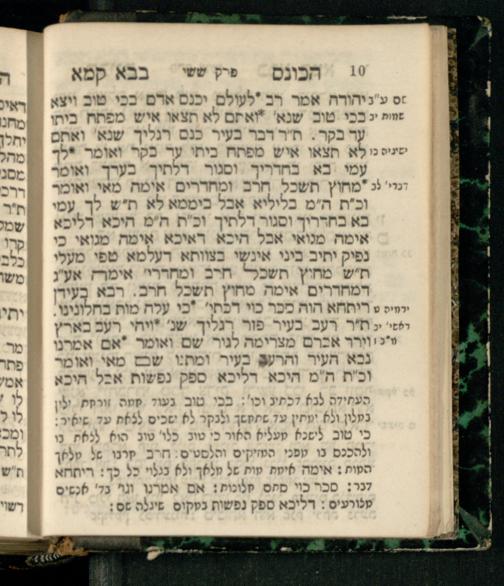 10 הכונס פרק ששי בבא קמא
יהודה אמר רב *לעולם יכנס אדם בכי טוב ויצא
בכי טוב שנא' *ואתם לא תצאו איש מפתח ביתו
עד בקר. ת"ר דבר בעיר כנס רגליך שנא' ואתם
לא תצאו איש מפתח ביתו עד בקר ואומר *לך
עמי בא בחדריך וסגור דלתיך בערך ואומר
*מחוץ תשכל חרב ומחדרים אימה מאי ואומר
וכ"ת ה"מ בליליא אבל ביממא לא ת"ש לך עמי
בא בחדריך וסגור דלתיך וכ"ת ה"מ היכא דליכא
אימה מגואי אבל היכא דאיכא אימה מגואי כי
נפיק יתיב ביני אינשי בצוותא דעלמא טפי מעלי
ת"ש מחוץ תשכל חרב ומחדרי' אימה אע"ג
דמחדרים אימה מחוץ תשכל חרב. רבא בעידן
ריתחא הוה סכר כוי דכתי' *כי עלה מות בחלונינו.
ת"ר רעב בעיר פזר רגליך שנ' *ויהי רעב בארץ
וירד אברם מצרימה לגור שם ואומר *אם אמרנו
נבא העיר והרעב בעיר ומתנו שם מאי ואומר
וכ"ת ה"מ היכא דליכא ספק נפשות אבל היכא
שמות יב
ישעיה כו
דברי' לב
ירמיה ט
ראשי' יב
מ"ב ז
העתידה לבא דכתיב וכו': בכי טוב בעוד
במלון ולא ימתין עד שתחשך ולבקר לא ישכים לצאת עד שיאיר:
וכי טוב לישנא מעליא האור כי טוב כלו' טוב הוא לצאת בו
ולהכנס בו מפני המזיקים והלסטים: חרב חרבו של מלאך
המות: אימה אימת מות של מלאך ולא בגלוי כל כך: ריתחא
דבר: סכר כוי סתם חלונות: אם אמרנו וגו' בד' אנשים
מצורעים: דליכא ספק נפשות במקום שיגלה שם: